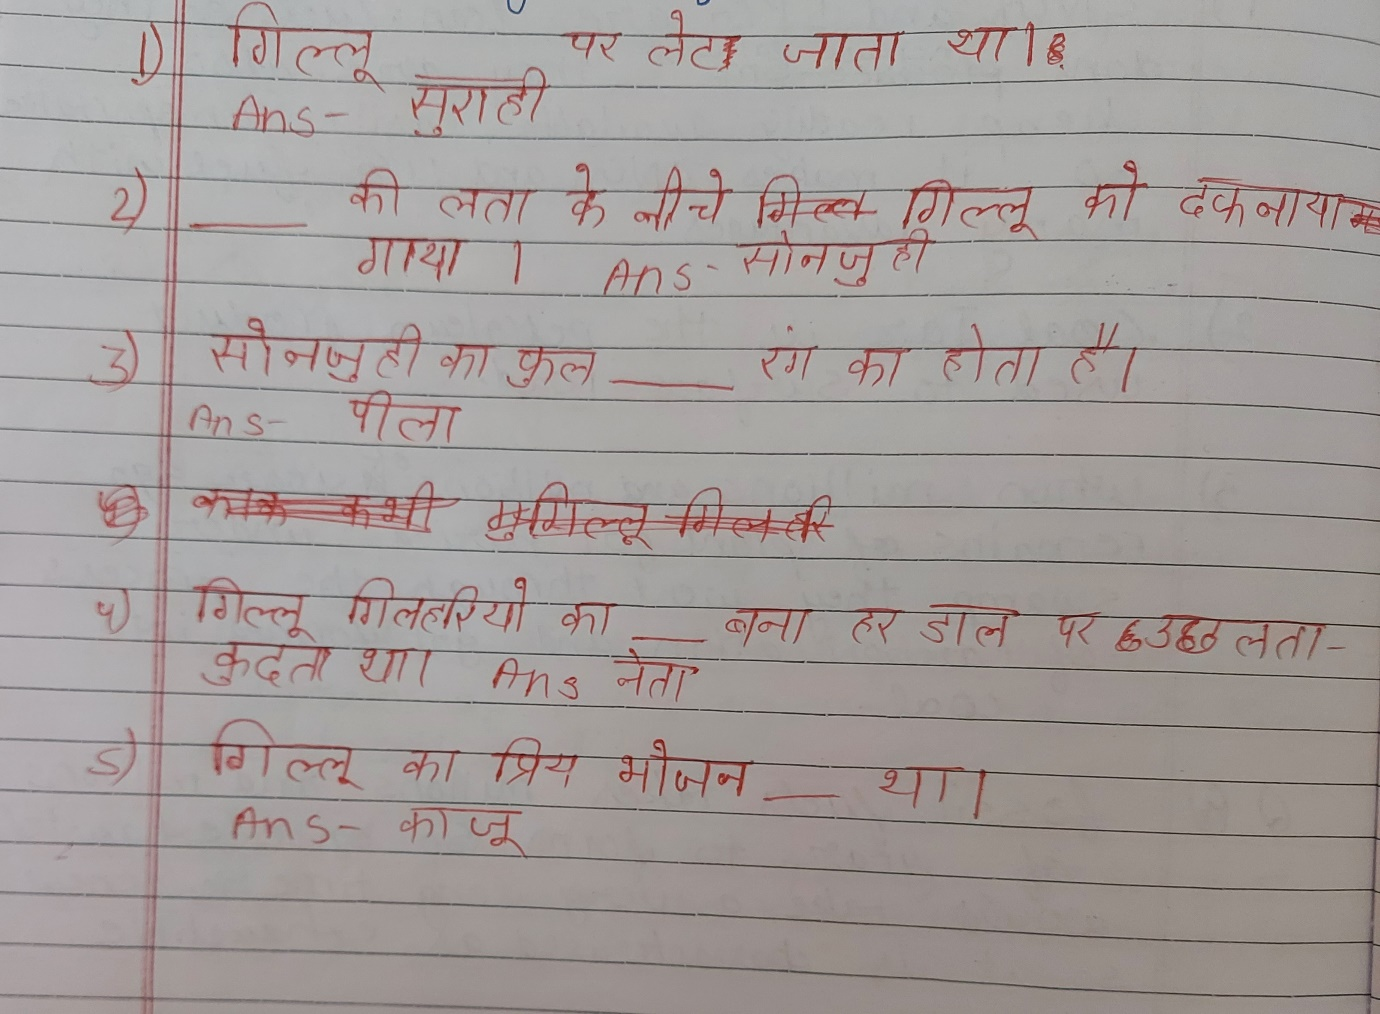 1) गिल्लू ____ पर लेट जाता था।
Ans- सुराही
2) ____ की लता के नीचे गिल्लू को दफनाया
गाया । Ans- सोनजुही
3) सोनजुही का फुल ____ रंग का होता है।
Ans- पीला
4) गिल्लू गिलहरियो का ___ बना हर डाल पर उछलता-
कुदता था। Ans नेता
5) गिल्लू का प्रिय भोजन ___ था।
Ans- काजू